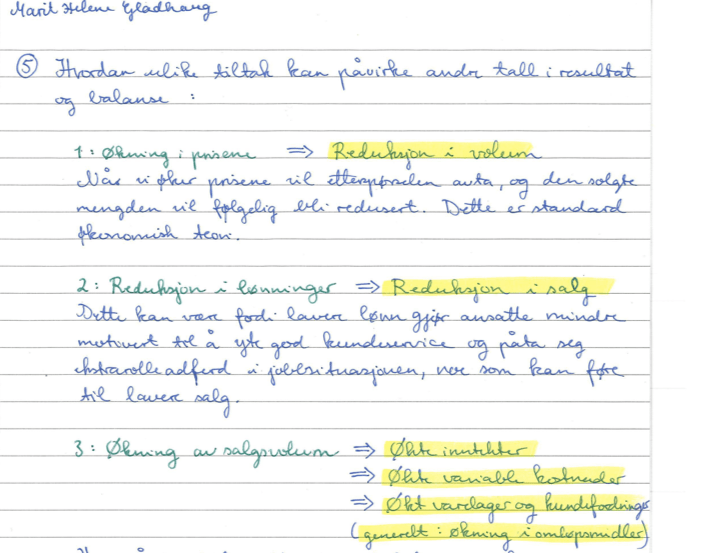 Marit Helene Gladhaug
⑤ Hvordan ulike tiltak kan påvirke andre tall i resultat
og balanse :
1: Økning i prisene ⇒ Reduksjon i volum
Når vi øker prisene vil etterspørselen avta, og den solgte
mengden vil følgelig bli redusert. Dette er standard
økonomisk teori.
2: Reduksjon i lønninger ⇒ Reduksjon i salg
Dette kan være fordi lavere lønn gjør ansatte mindre
motivert til å yte god kundeservice og påta seg
ekstrarolleadferd i jobbsituasjonen, noe som kan føre
til lavere salg.
3: Økning av salgsvolum ⇒ Økte inntekter
⇒ Økte variable kostnader
⇒ Økt varelager og kundefordringer
(generelt: økning i omløpsmidler)